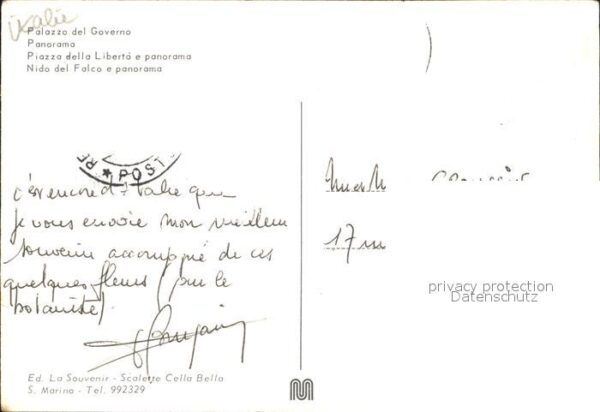 Italie
Palazzo del Governo
Panorama
Piazza della Libertà e panorama
Nido del Falco e panorama
POST
c'est encore d'Italie que
je vous envoie mon meilleur
souvenir accompagné de ces
quelques fleurs (pour le
botaniste)
17
privacy protection
Datenschutz
Ed. La Souvenir - Scalette Cella Bella
S. Marino - Tel. 992329